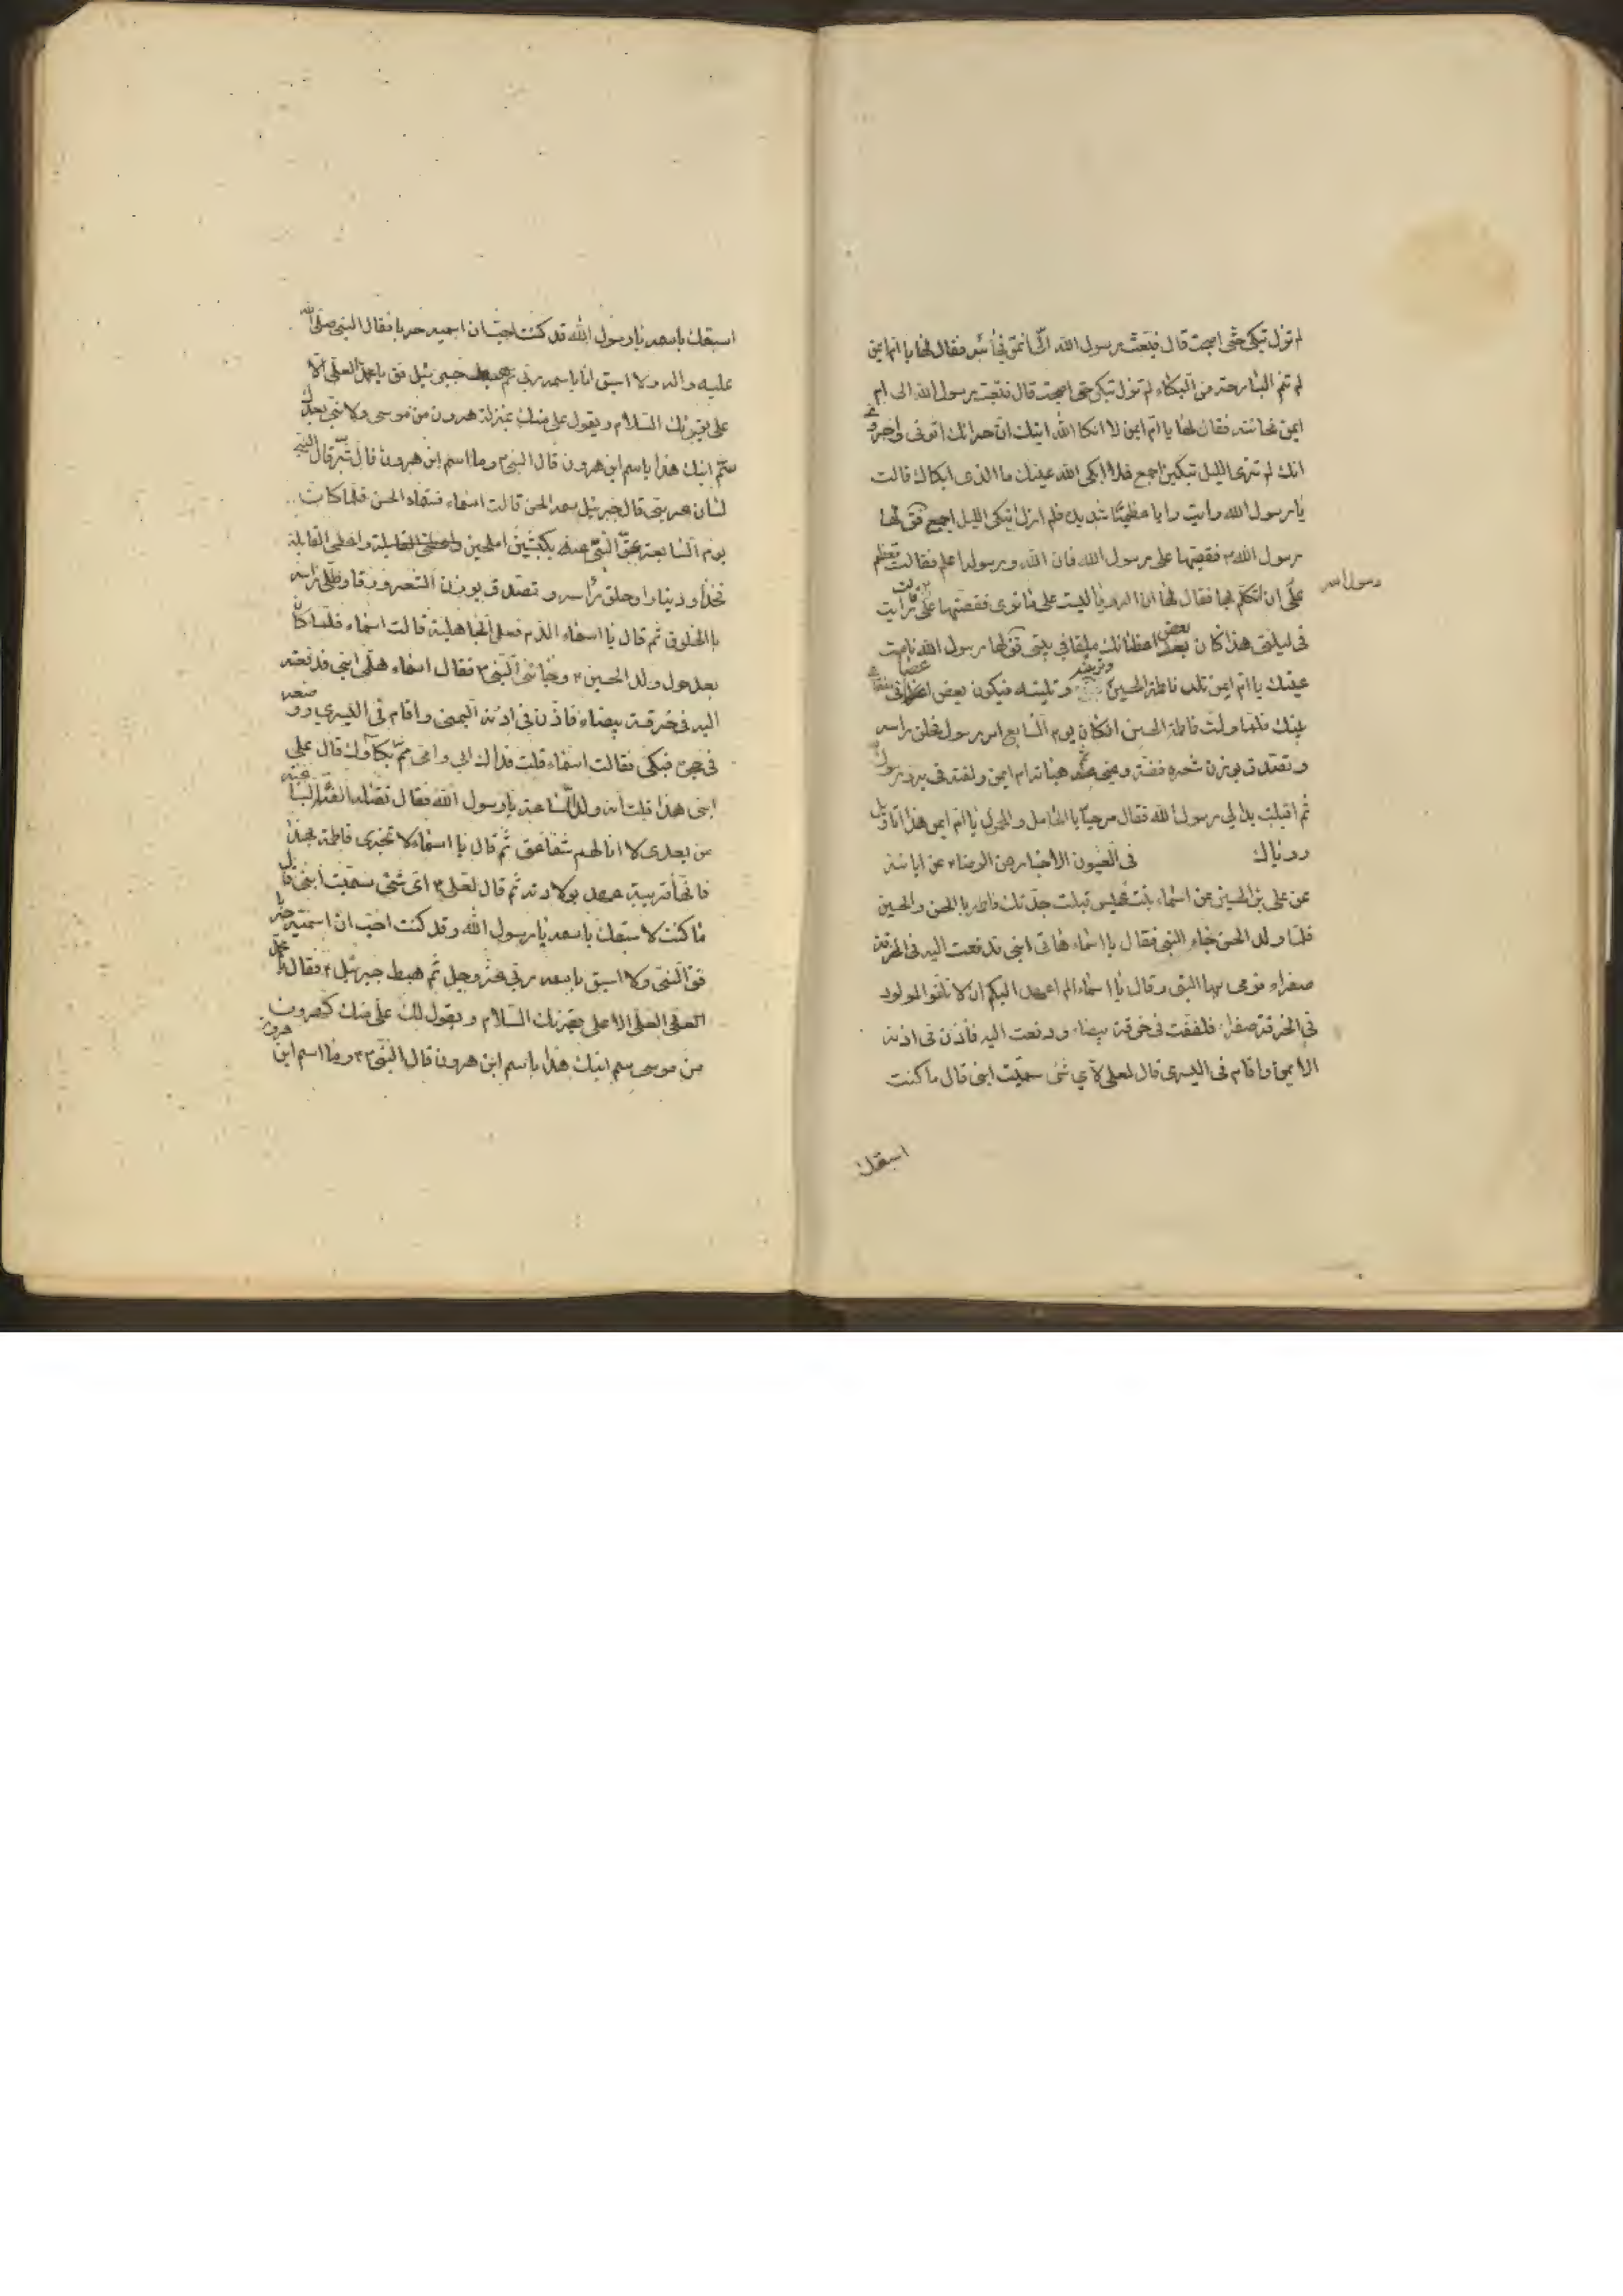 لم تزل تبكى حتى اصبحت قال فبعث رسول الله الى ام ايمن فجائته فقال لها يا ام ايمن
لم تنم البارحة من البكاء لم تزل تبكى حتى اصبحت قال فبعث رسول الله الى ام
ايمن فجائته فقال لها يا ام ايمن لا ابكا الله عينك ان جيرانك اتونى واخبرو
انك لم تزى الليل تبكين اجمع فلا ابكى الله عينك ما الذى ابكاك قالت
يا رسول الله رايت رايا عظيمًا شديد فلم ازل ابكى الليل اجمع فق لها
رسول الله ص فقصيها على رسول الله فان الله ورسوله اعلم فقالت تعظم
على ان اتكلم بها فقال لها ان الرويا ليست على ما ترى فقصتها على قالت رايت
رسول الله
فى ليلتى هذا كان بعض اعظائك ملقا فى بيتى فق لها رسول الله نامت
عينك يا ام ايمن تلد فاطمة الحسين وتربينه وتلبنه فيكون بعض اعضائى فى
بيتك فلما ولدت فاطمة الحسين فكان يوم السابع امر رسول فحلق راسه
وتصدق بوزن شعره فضة وعق عنه ثم هياته ام ايمن ولفته فى برد رسول
ثم اقبلت به الى رسول الله فقال مرحبًا بالحامل والمحمول يا ام ايمن هذا تاويل
روياك فى العيون الاخبار عن الرضاء عن ابائه
عن على بن الحسين عن اسماء بنت عميس قبلت جدتك فاطمة بالحسن والحسين
فلما ولد الحسن جاء النبى فقال يا اسماء هاتى ابنى فدفعت اليه فى الخرقة
صفراء فرمى بها النبى وقال يا اسماء الم اعهد اليكم ان لا تلفوا المولود
فى الخرقة صفراء فلففت فى خرقة بيضاء ودفعت اليه فاذن فى اذنه
الايمن واقام فى اليسرى قال لعلى لاى شئ سميت ابنى قال ما كنت
اسبقك
اسبقك باسمه يا رسول الله قد كنت احب ان اسميه حربا فقال النبى صلى الله
عليه واله ولا اسبق انا باسمه ربى ثم هبط جبرئيل فق يا محمد العلى الاعلى
على يقرئك السلام ويقول على منك بمنزلة هرون من موسى ولا نبى بعدك
سم ابنك هذا باسم ابن هرون قال النبى ص وما اسم ابن هرون قال شبر قال النبى
لسان عربى قال جبرئيل سمه الحسن قالت اسماء فسماه الحسن فلما كان
يوم السابعة عق النبى عنه بكبشين املحين واعطى القابلة
فخذا ودينارا وحلق راسه وتصدق بوزن الشعر ورقا وطلى راسه
بالخلوق ثم قال يا اسماء الدم فعل الجاهلية قالت اسماء فلما كان
بعد حول ولد الحسين ع وجائنى النبى ص فقال اسماء هلمى ابنى فدفعته
اليه فى خرقة بيضاء فاذن فى اذنه اليمنى واقام فى اليسرى ووضعه
فى حجره فبكى فقالت اسماء قلت فداك ابى وامى مم بكاؤك قال على
ابنى هذا قلت انه ولد الساعة يا رسول الله فقال تقتله الفئة الباغية
من بعدى لا انالهم شفاعتى ثم قال يا اسماء لا تخبرى فاطمة بهذا
فانها قريبة عهد بولادته ثم قال لعلى ع اى شئ سميت ابنى قال
ما كنت لا سبقك باسمه يا رسول الله وقد كنت احب ان اسميه حربا
فق النبى ولا اسبق باسمه ربى عز وجل ثم هبط جبرئيل ع فقال يا محمد
العلى الاعلى يقرئك السلام ويقول لك على منك كهرون
من موسى سم ابنك هذا باسم ابن هرون قال النبى ص وما اسم ابن هرون